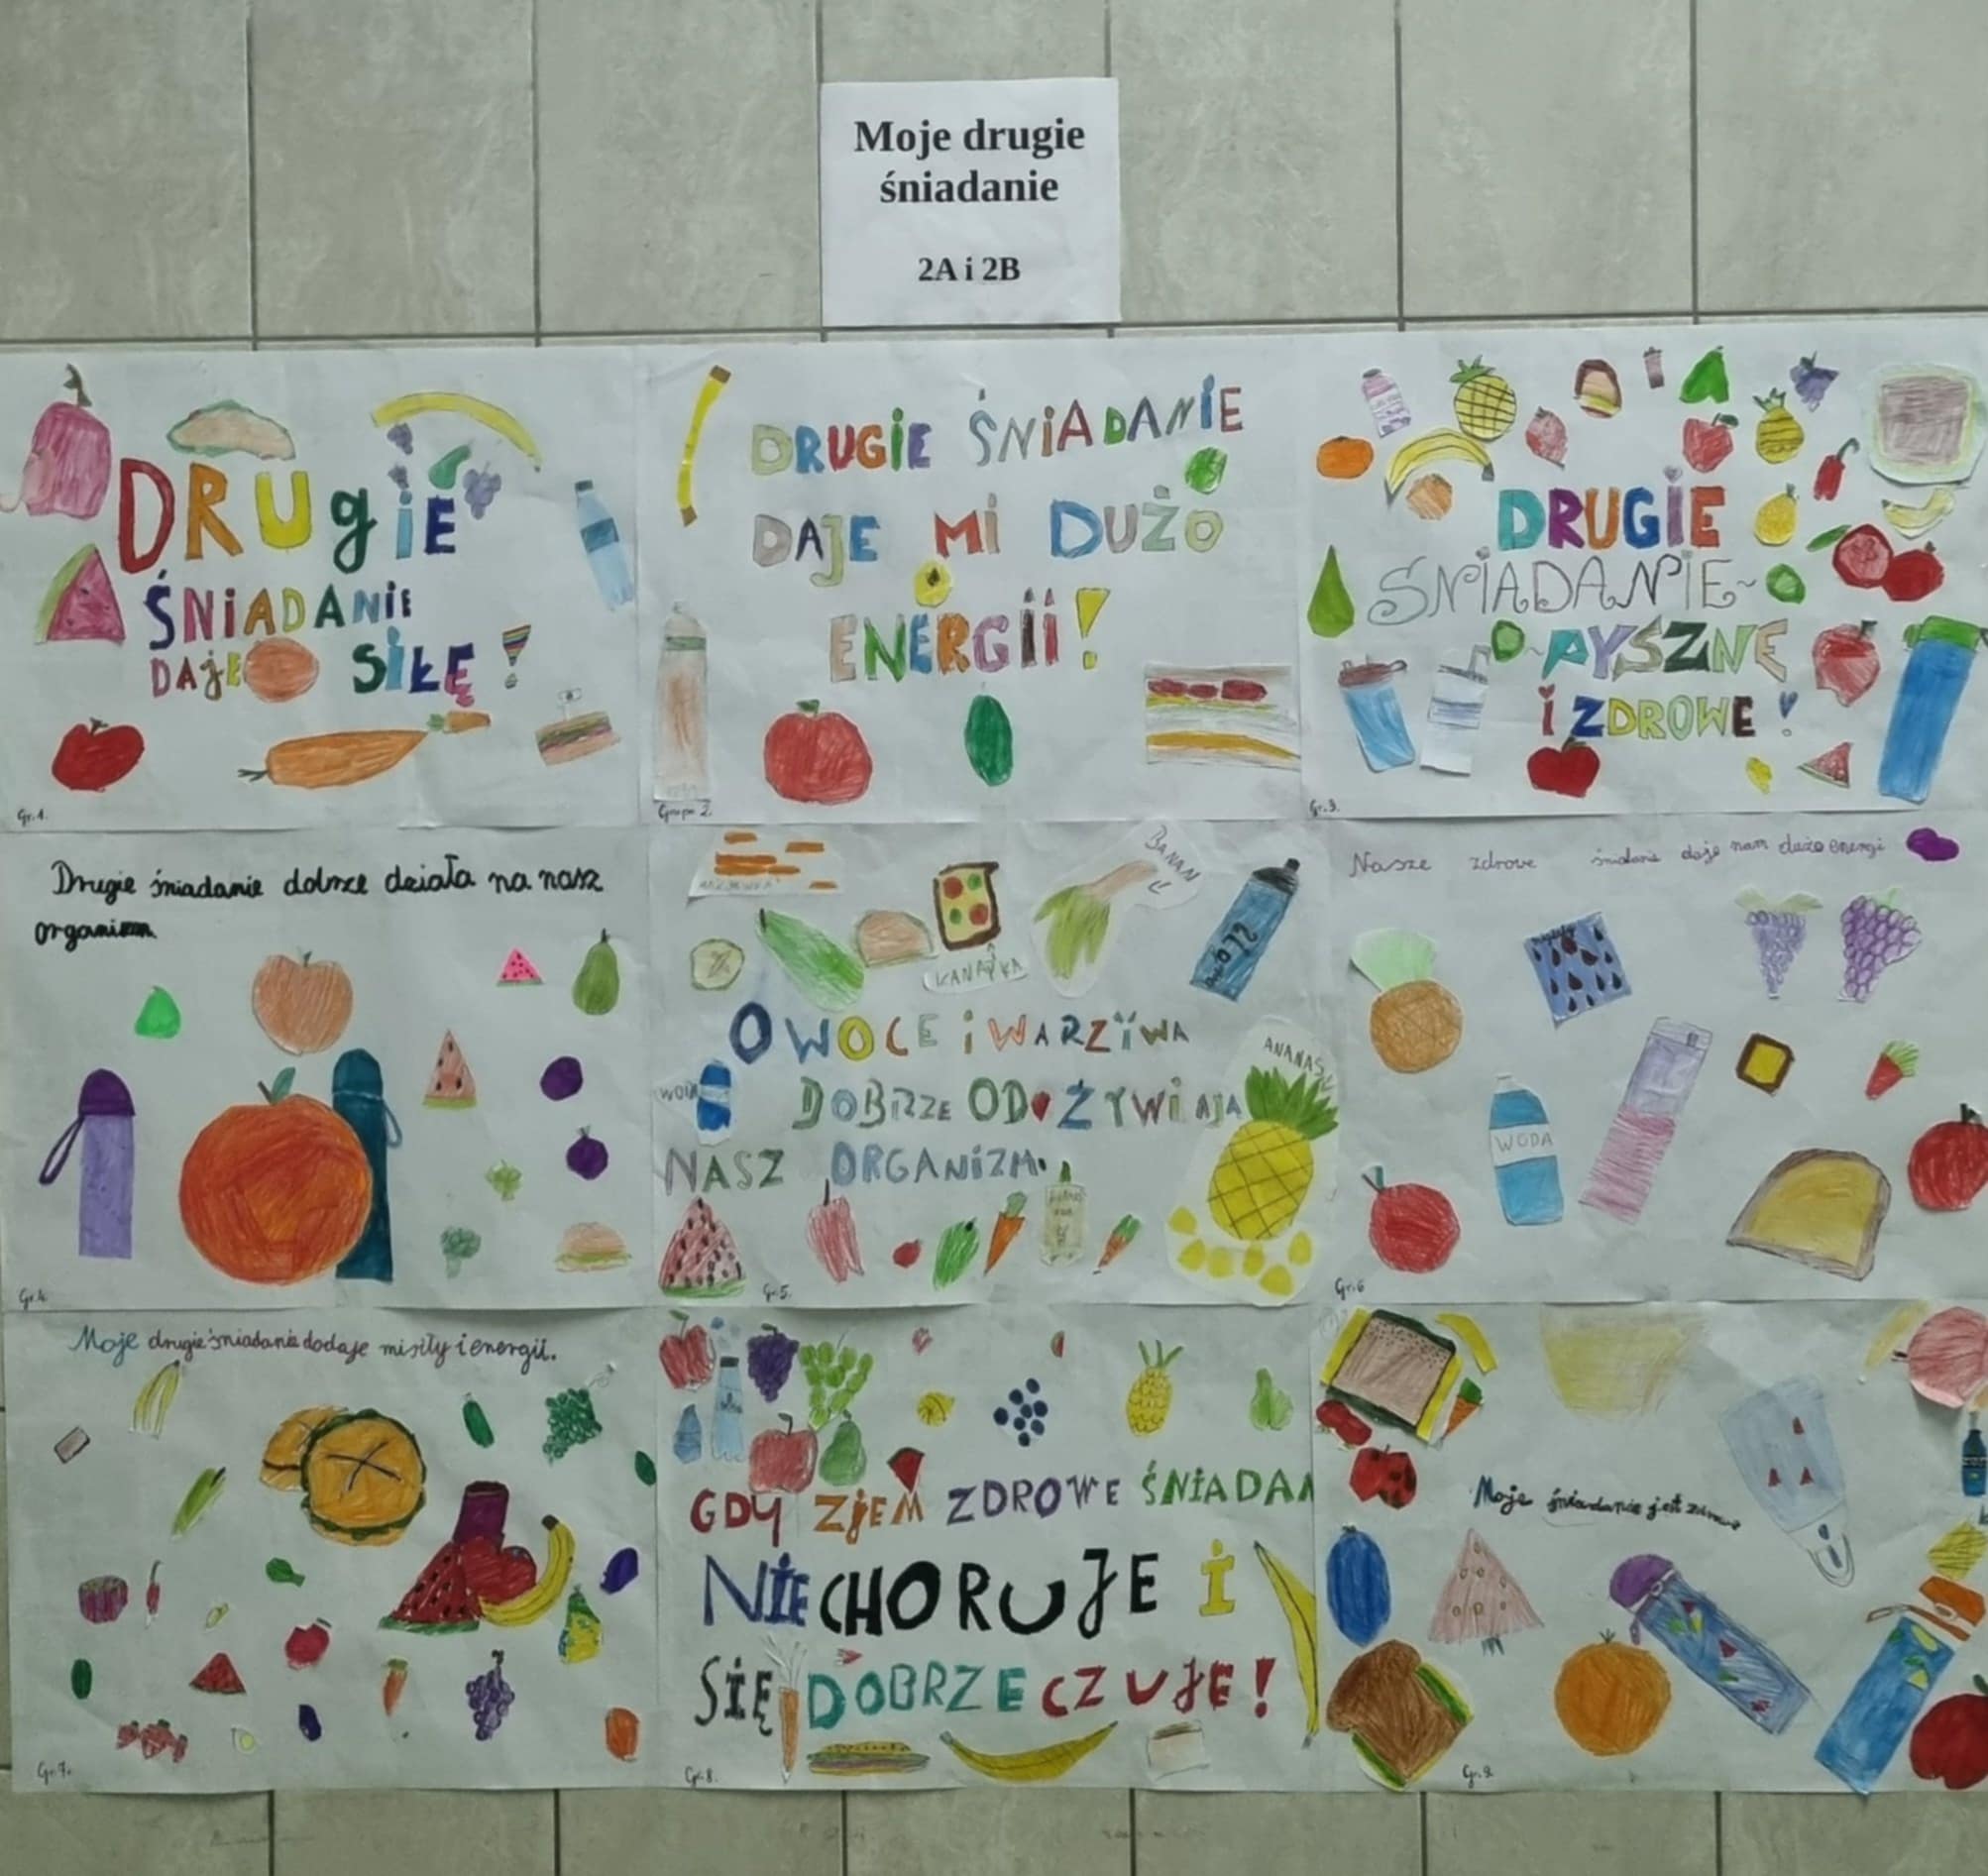 Moje drugie
śniadanie
2A i 2B
DRUgiE
ŚNiADANiE
DAjE SiŁĘ !
Gr.1.
DRUGiE ŚNiADANiE
DAJE Mi DUŻO
ENERGii!
Grupa 2.
DRUGiE
ŚNiADANiE
PYSZNE
i ZDROWE!
Gr.3.
Drugie śniadanie dobrze działa na nasz
organizm
Gr.4.
BANAN
KANAPKA
OWOCE i WARZYWA
ANANAS
WODA
DOBRZE ODŻYWiAJA
NASZ ORGANiZM.
Gr.5.
Nasze zdrowe śniadanie daje nam dużo energi
WODA
Gr.6
Moje drugie śniadanie dodaje mi siły i energii.
Gr.7.
GDY ZjEM ZDROWE ŚNiADAN
NiE CHORUJE i
SiĘ DOBRZE CZUJE!
Gr.8.
Moje śniadanie jest zdrowe
Gr.9.